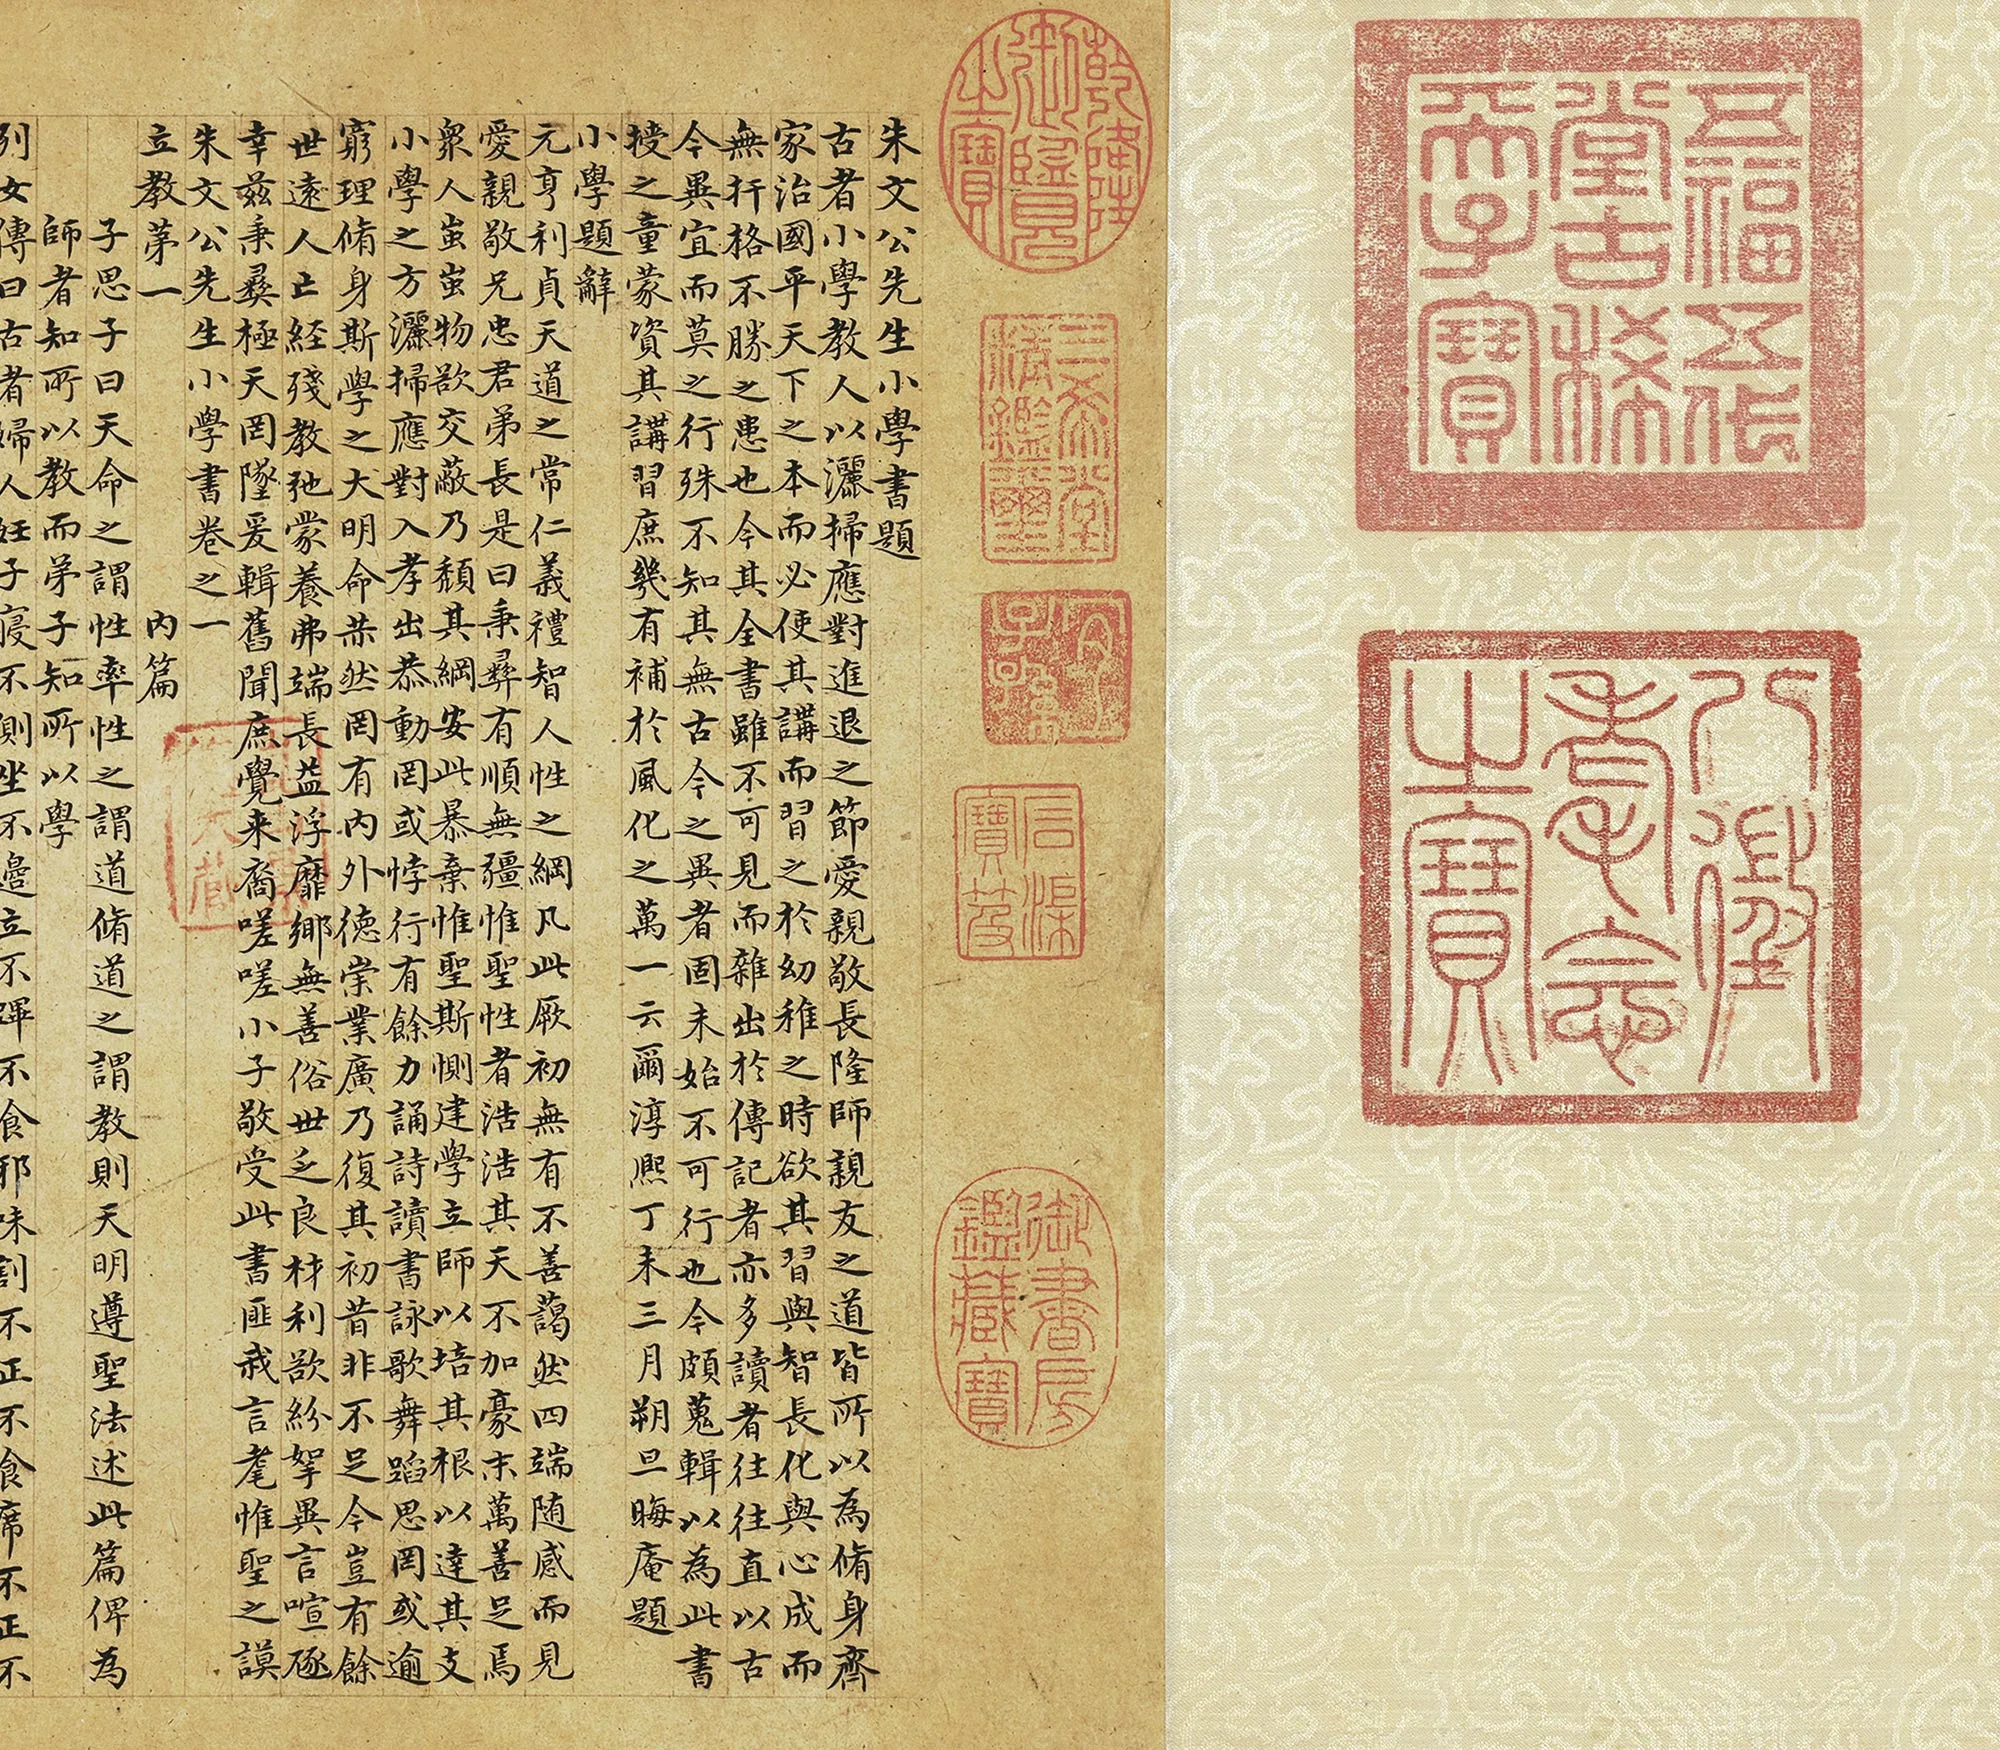 五福五代
堂古稀
天子寶
八徵
耄念
之寶
乾隆
御覽
之寶
三希堂
精鑑璽
宜
子孫
石渠
寶笈
御書房
鑑藏寶
朱文公先生小學書題
古者小學教人以灑掃應對進退之節愛親敬長隆師親友之道皆所以為脩身齊
家治國平天下之本而必使其講而習之於幼稚之時欲其習與智長化與心成而
無扞格不勝之患也今其全書雖不可見而雜出於傳記者亦多讀者往往直以古
今異宜而莫之行殊不知其無古今之異者固未始不可行也今頗蒐輯以為此書
授之童蒙資其講習庶幾有補於風化之萬一云爾淳熙丁未三月朔旦晦庵題
小學題辭
元亨利貞天道之常仁義禮智人性之綱凡此厥初無有不善藹然四端随感而見
愛親敬兄忠君弟長是曰秉彝有順無疆惟聖性者浩浩其天不加豪末萬善足焉
衆人蚩蚩物欲交蔽乃頹其綱安此暴棄惟聖斯惻建學立師以培其根以達其支
小學之方灑掃應對入孝出恭動罔或悖行有餘力誦詩讀書詠歌舞蹈思罔或逾
窮理脩身斯學之大明命赫然罔有内外德崇業廣乃復其初昔非不足今豈有餘
世遠人亡經殘教弛蒙養弗端長益浮靡鄉無善俗世乏良材利欲紛挐異言喧豗
幸茲秉彝極天罔墜爰輯舊聞庶覺来裔嗟嗟小子敬受此書匪我言耄惟聖之謨
朱文公先生小學書卷之一
立教第一 内篇
子思子曰天命之謂性率性之謂道脩道之謂教則天明遵聖法述此篇俾為
師者知所以教而弟子知所以學
列女傳曰古者婦人妊子寢不側坐不邊立不蹕不食邪味割不正不食席不正不